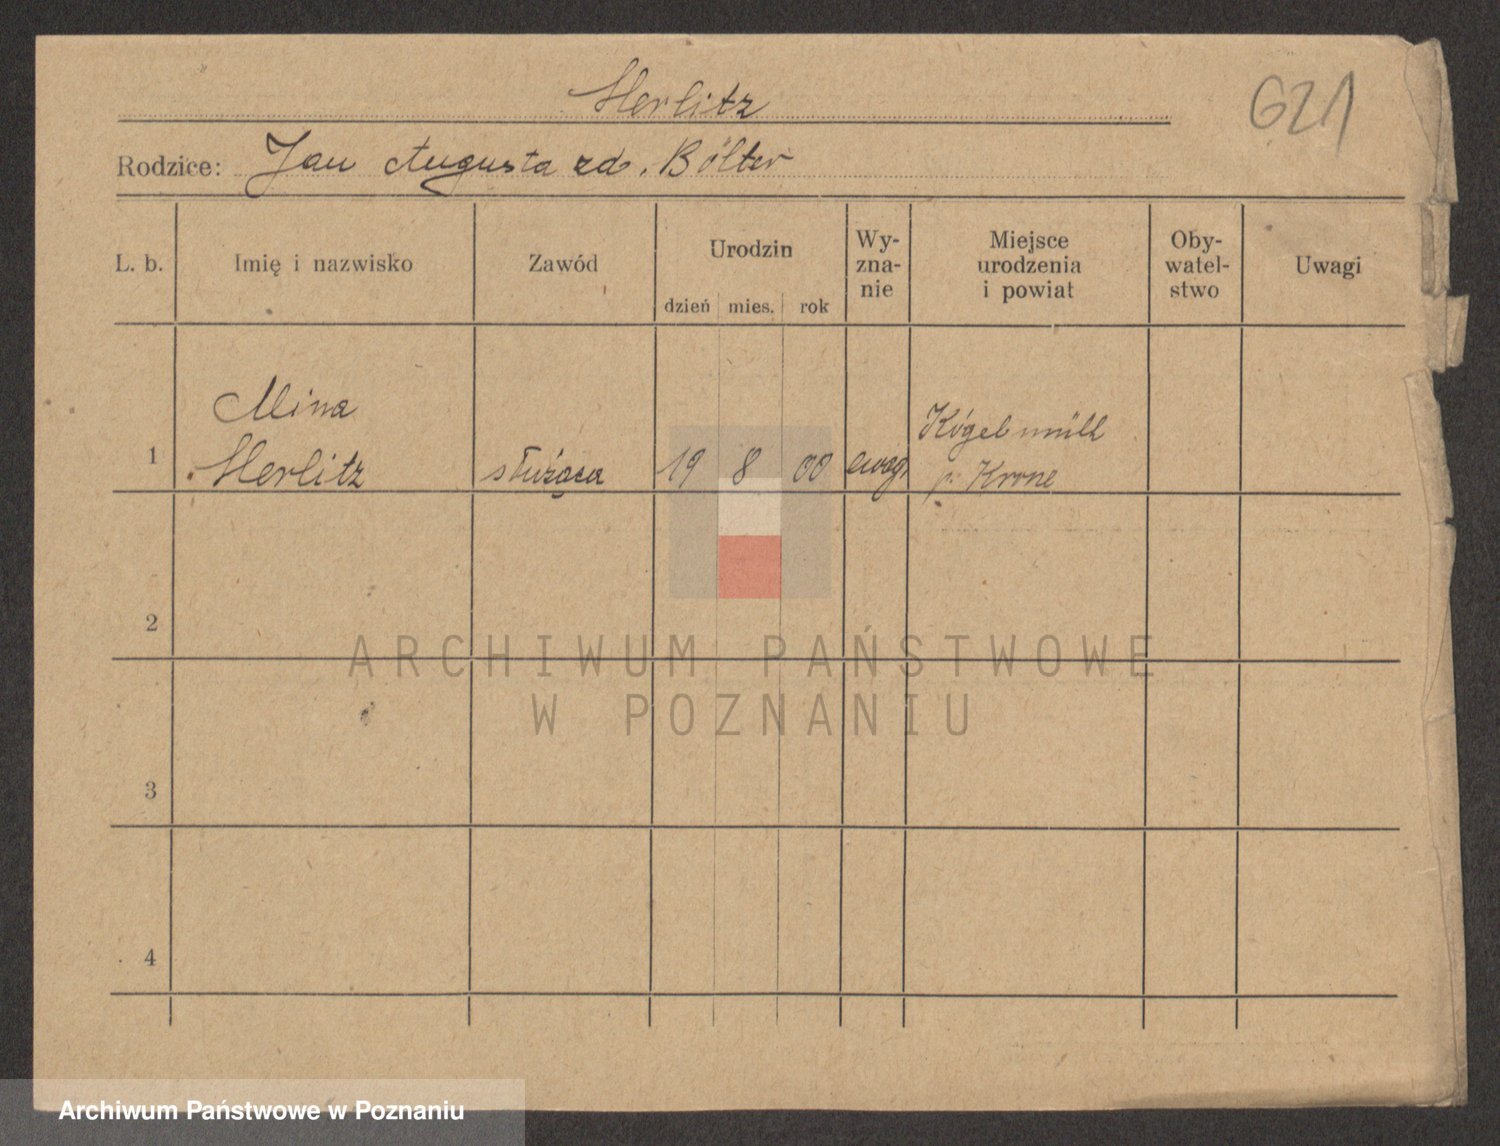 Herlitz
621
Rodzice: Jan Augusta zd. Bölter
L. b.
Imię i nazwisko
Zawód
Urodzin
dzień mies. rok
Wy-
zna-
nie
Miejsce
urodzenia
i powiat
Oby-
watel-
stwo
Uwagi
1
Mina
Herlitz
służąca
19 8 00
ewag.
Kógelmühl
p. Krone
2
3
4
ARCHIWUM PAŃSTWOWE
W POZNANIU
Archiwum Państwowe w Poznaniu